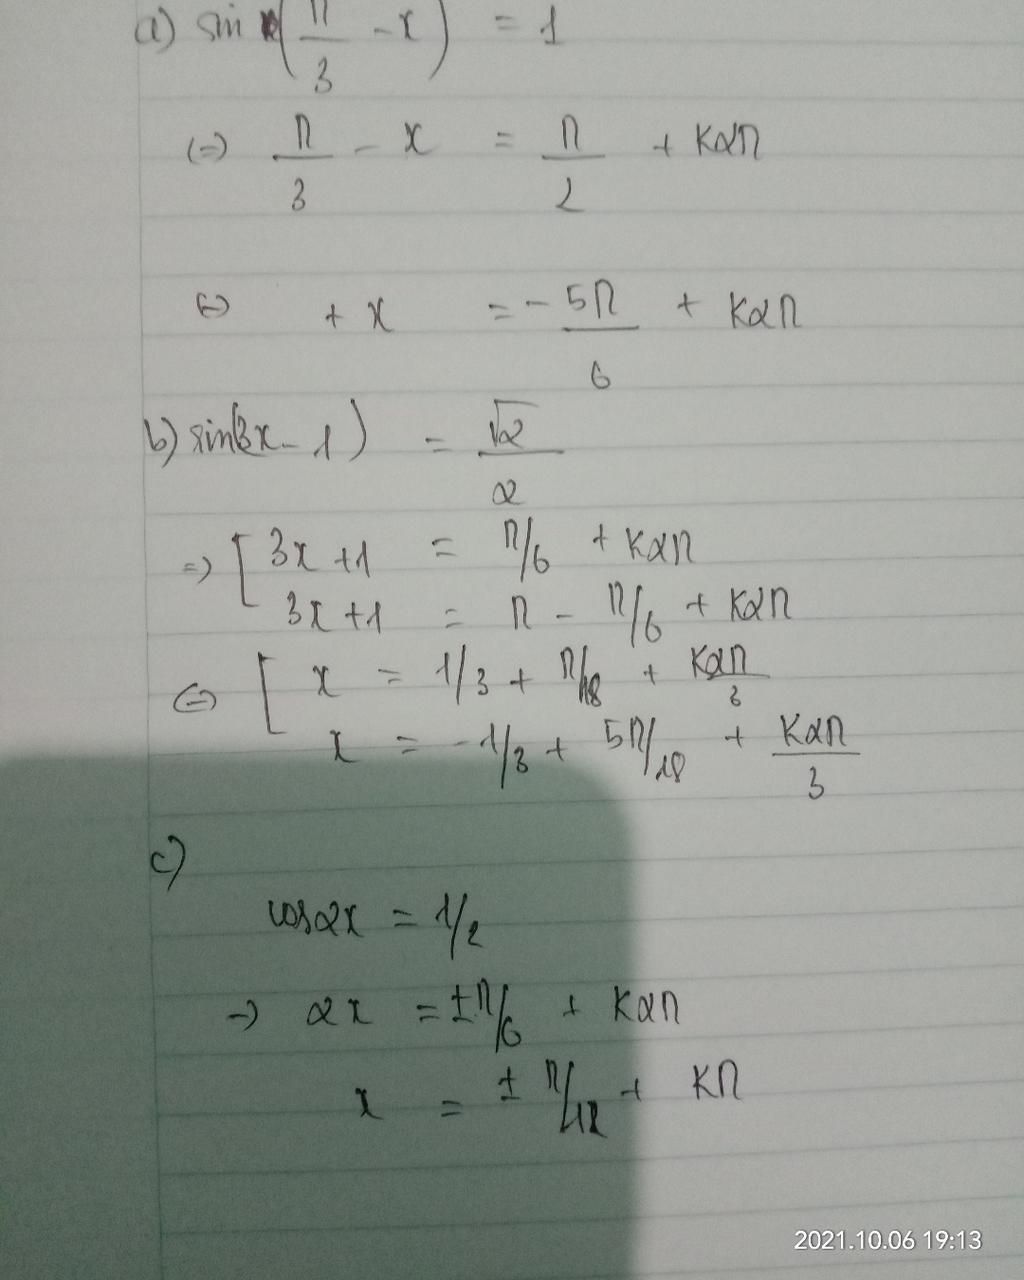 a) sin (π/3 - x) = 1
(=) π/3 - x = π/2 + k2π
(=) + x = - 5π/6 + k2π
b) sin(3x - 1) = √2/2
=) [ 3x + 1 = π/6 + k2π
3x + 1 = π - π/6 + k2π
(=) [ x = 1/3 + π/18 + k2π/3
x = - 1/3 + 5π/18 + k2π/3
c)
cos2x = 1/2
-) 2x = ± π/6 + k2π
x = ± π/12 + kπ
2021.10.06 19:13